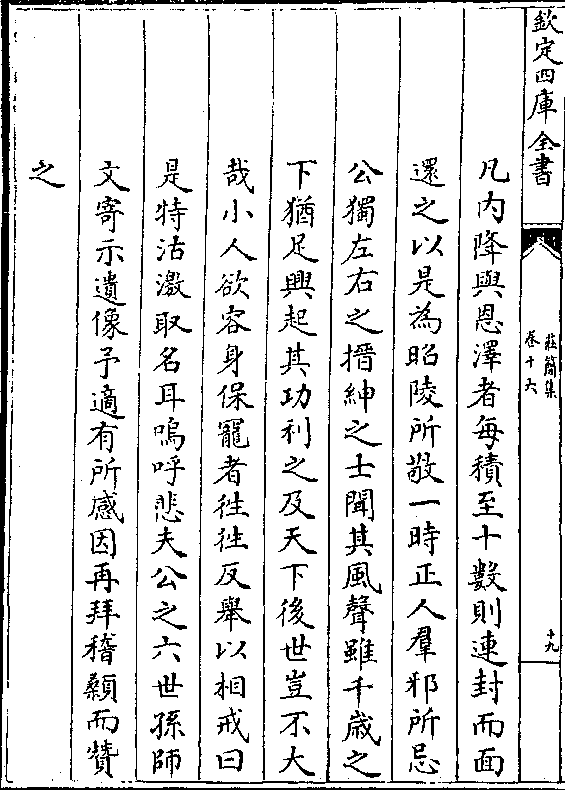 欽定四庫全書
莊簡集
卷十六
十九
凡内降與恩澤者每積至十數則連封而面
還之以是為昭陵所敬一時正人羣邪所忌
公獨左右之搢紳之士聞其風聲雖千歳之
下猶足興起其功利之及天下後世豈不大
哉小人欲容身保寵者徃徃反舉以相戒曰
是特沽激取名耳嗚呼悲夫公之六世孫師
文寄示遺像予適有所感因再拜稽顙而贊
之